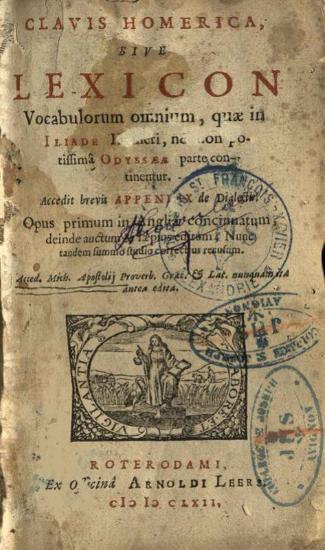 CLAVIS HOMERICA,
SIVE
LEXICON
Vocabulorum omnium, quæ in
ILIADE Homeri, nec non po-
tissimâ ODYSSÆÆ parte con-
tinentur.
Accedit brevis APPENDIX de Dialectis.
Opus primum in Angliâ concinnatum
deinde auctum & sæpius editum; Nunc
tandem summo studio correctius recusum.
Acced. Mich. Apostolij Proverb. Græc. & Lat. nunquam ita
antea edita.
VIGILANTIA
LABORE ET
ST FRANÇOIS XAVIER
ALEXANDRIE
ROTERODAMI,
Ex Officinâ ARNOLDI LEERS,
cIↃ IↃ CLXII,